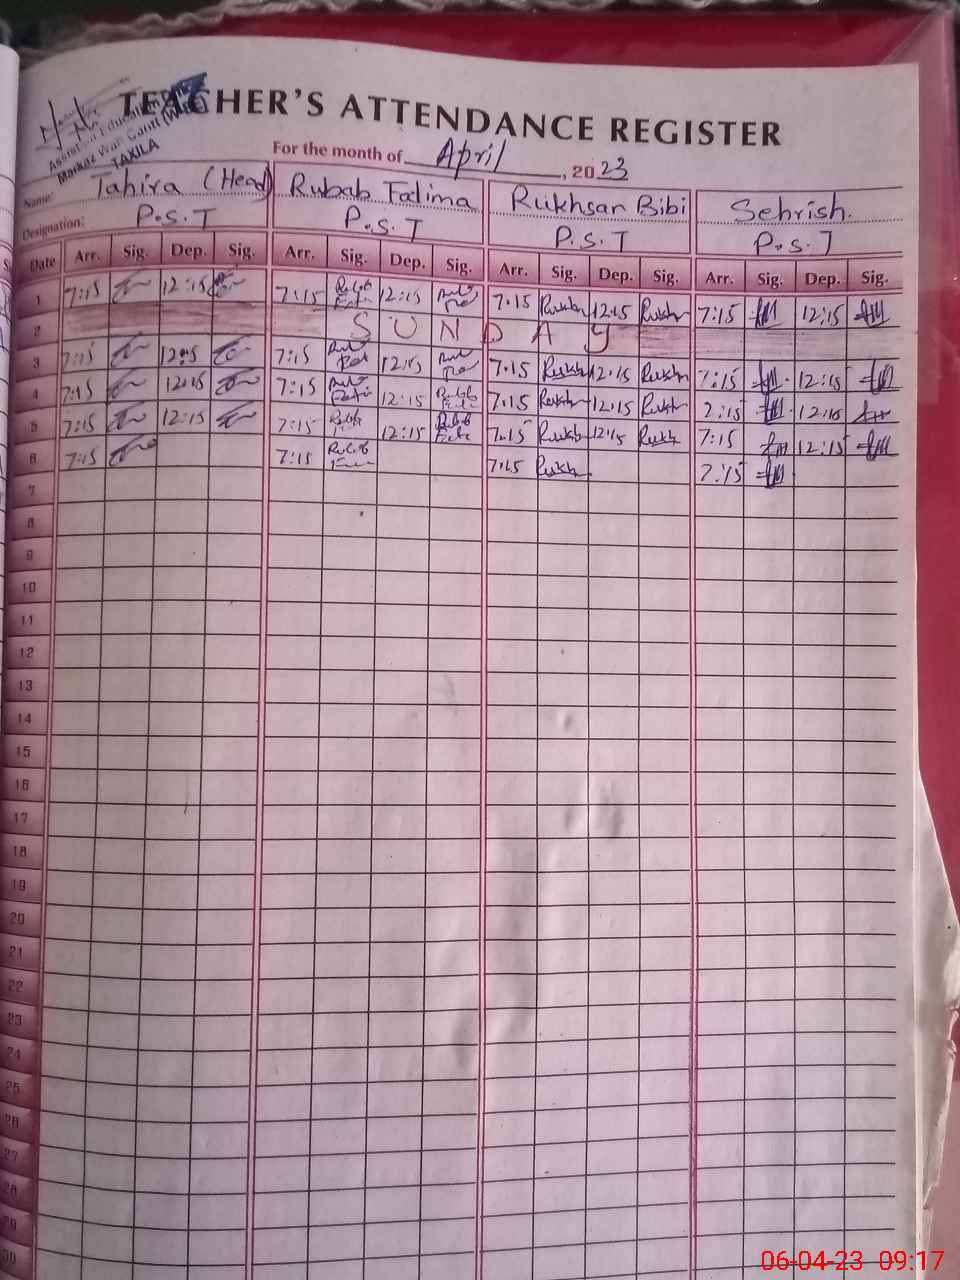 TEACHER'S ATTENDANCE REGISTER
Assistant Education
Markaz Wah Cantt (W-EE)
TAXILA
For the month of April, 2023
Name: Tahira (Head) Rubab Fatima Rukhsar Bibi Sehrish.
Designation: P.S.T P.S.T P.S.T P.S.T
Date Arr. Sig. Dep. Sig. Arr. Sig. Dep. Sig. Arr. Sig. Dep. Sig. Arr. Sig. Dep. Sig.
1 7:15 12:15 7:15 12:15 7.15 Rukh 12.15 Rukh 7:15 12:15
2 SUNDAY
3 7:15 12:15 7:15 12:15 7.15 Rukh 12.15 Rukh 7:15 12:15
4 7:15 12:15 7:15 12:15 7.15 Rukh 12.15 Rukh 7:15 12:15
5 7:15 12:15 7:15 12:15 7.15 Rukh 12.15 Rukh 7:15 12:15
6 7:15 7:15 7.15 Rukh 7:15
7
8
9
10
11
12
13
14
15
16
17
18
19
20
21
22
23
24
25
26
27
28
29
30
06-04-23 09:17